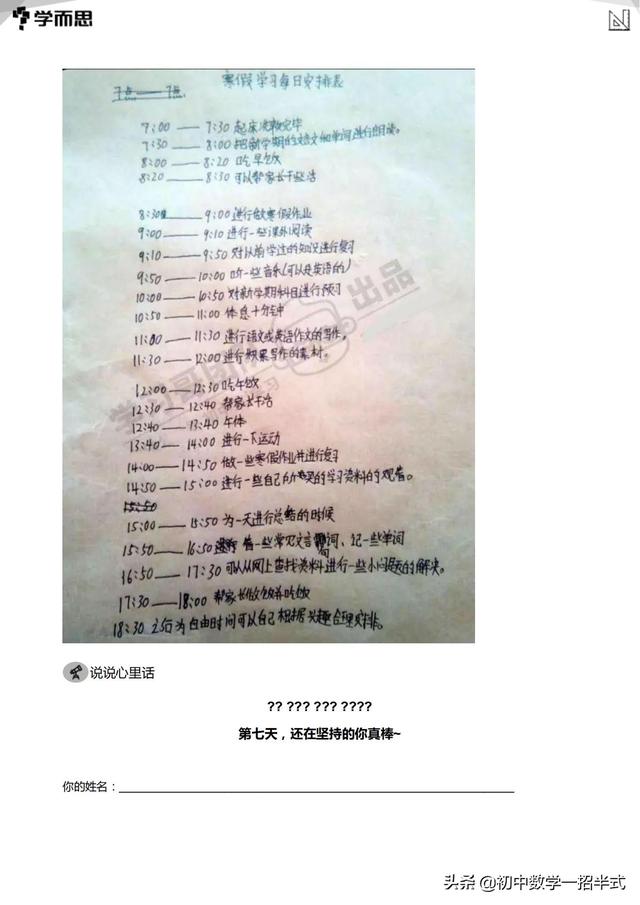 学而思
寒假学习每日安排表
7:00 —— 7:30 起床洗漱完毕
7:30 —— 8:00 把新学期的语文和单词进行朗读。
8:00 —— 8:20 吃早饭
8:20 —— 8:30 可以帮家长干些活
8:30 —— 9:00 进行做寒假作业
9:00 —— 9:10 进行一些课外阅读
9:10 —— 9:50 对以前学过的知识进行复习
9:50 —— 10:00 听一些音乐(可以是英语的)
10:00 —— 10:50 对新学期科目进行预习
10:50 —— 11:00 休息十分钟
11:00 —— 11:30 进行语文或英语作文的写作。
11:30 —— 12:00 进行积累写作的素材。
12:00 —— 12:30 吃午饭
12:30 —— 12:40 帮家长干活
12:40 —— 13:40 午休
13:40 —— 14:00 进行一下运动
14:00 —— 14:50 做一些寒假作业并进行复习
14:50 —— 15:00 进行一些自己的学习资料的观看。
15:00 —— 15:50 为一天进行总结的时候
15:50 —— 16:50 看一些常见文言词、记一些单词
16:50 —— 17:30 可以从网上查找资料进行一些小问题的解决。
17:30 —— 18:00 帮家长做饭并吃饭
18:30 之后为自由时间可以自己根据兴趣合理安排。
说说心里话
?? ??? ??? ????
第七天，还在坚持的你真棒~
你的姓名：
头条 @初中数学一招半式